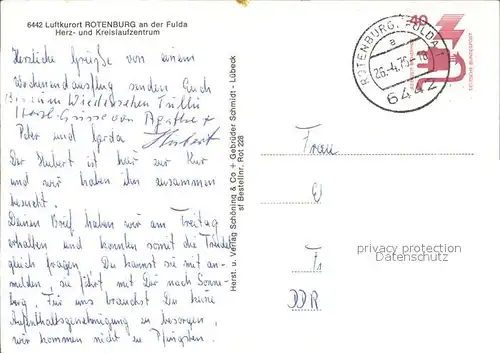 6442 Luftkurort ROTENBURG an der Fulda
Herz- und Kreislaufzentrum
Herzliche Grüße von einem
Wochenendausflug senden Euch
Bis zum Wiedersehen Trulli
Herzl. Grüsse von Agathe +
Peter und Gerda Hubert
Der Hubert ist hier zur Kur
und wir haben ihn zusammen
besucht.
Deinen Brief haben wir am Freitag
erhalten und konnten somit die Trude
gleich fragen. Du kannst sie mit an-
melden, sie fährt mit Dir nach Sonne-
berg. Für uns brauchst Du keine
Aufenthaltsgenehmigung zu besorgen,
wir kommen nicht zu Pfingsten.
Herst. u. Verlag Schöning & Co + Gebrüder Schmidt - Lübeck
Bestellnr. Rot 228
ROTENBURG, FULDA
a
26.-4.75.-18
6442
40
DEUTSCHE BUNDESPOST
Frau
DDR
privacy protection
Datenschutz